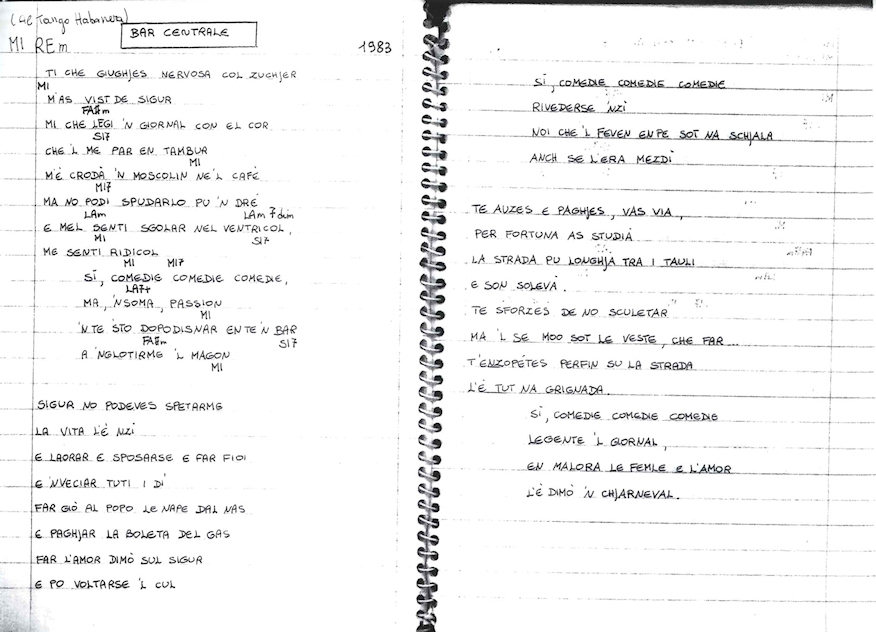 (4/4 Tango Habanera)
BAR CENTRALE
MI REm
1983
TI CHE GIUGHJES NERVOSA COL ZUCHJER
MI
M'AS VIST DE SIGUR
FA#m
MI CHE LEGI 'N GIORNAL CON EL COR
SI7
CHE 'L ME PAR EN TAMBUR
MI
M'È CRODÀ 'N MOSCOLIN NE'L CAFÈ
MI7
MA NO PODI SPUDARLO PU 'N DRÉ
LAm LAm7dim
E MEL SENTI SGOLAR NEL VENTRICOL,
MI SI7
ME SENTI RIDICOL
MI MI7
SÌ, COMEDIE COMEDIE COMEDIE,
LA7+
MA, 'NSOMA, PASSION
MI
'N TE 'STO DOPODISNAR EN TE 'N BAR
FA#m SI7
A 'NGLOTIRME 'L MAGON
MI
SIGUR NO PODEVES SPETARME
LA VITA L'È NZÌ
E LAORAR E SPOSARSE E FAR FIOI
E 'NVECIAR TUTI I DÌ
FAR GIÒ AL POPO LE NAPE DAL NAS
E PAGHJAR LA BOLETA DEL GAS
FAR L'AMOR DIMÒ SUL SIGUR
E PO VOLTARSE 'L CUL
SÌ, COMEDIE COMEDIE COMEDIE
RIVEDERSE 'NZÌ
NOI CHE 'L FEVEN EN PE SOT NA SCHJALA
ANCH SE L'ERA MEZDÌ
TE AUZES E PAGHJES, VAS VIA,
PER FORTUNA AS STUDIÀ
LA STRADA PU LONGHJA TRA I TAULI
E SON SOLEVÀ.
TE SFORZES DE NO SCULETAR
MA 'L SE MOO SOT LE VESTE, CHE FAR...
T'ENZOPÉTES PERFIN SU LA STRADA
L'È TUT NA GRIGNADA.
SÌ, COMEDIE COMEDIE COMEDIE
LEGENTE 'L GIORNAL,
EN MALORA LE FEMLE E L'AMOR
L'È DIMÒ 'N CHJARNEVAL.